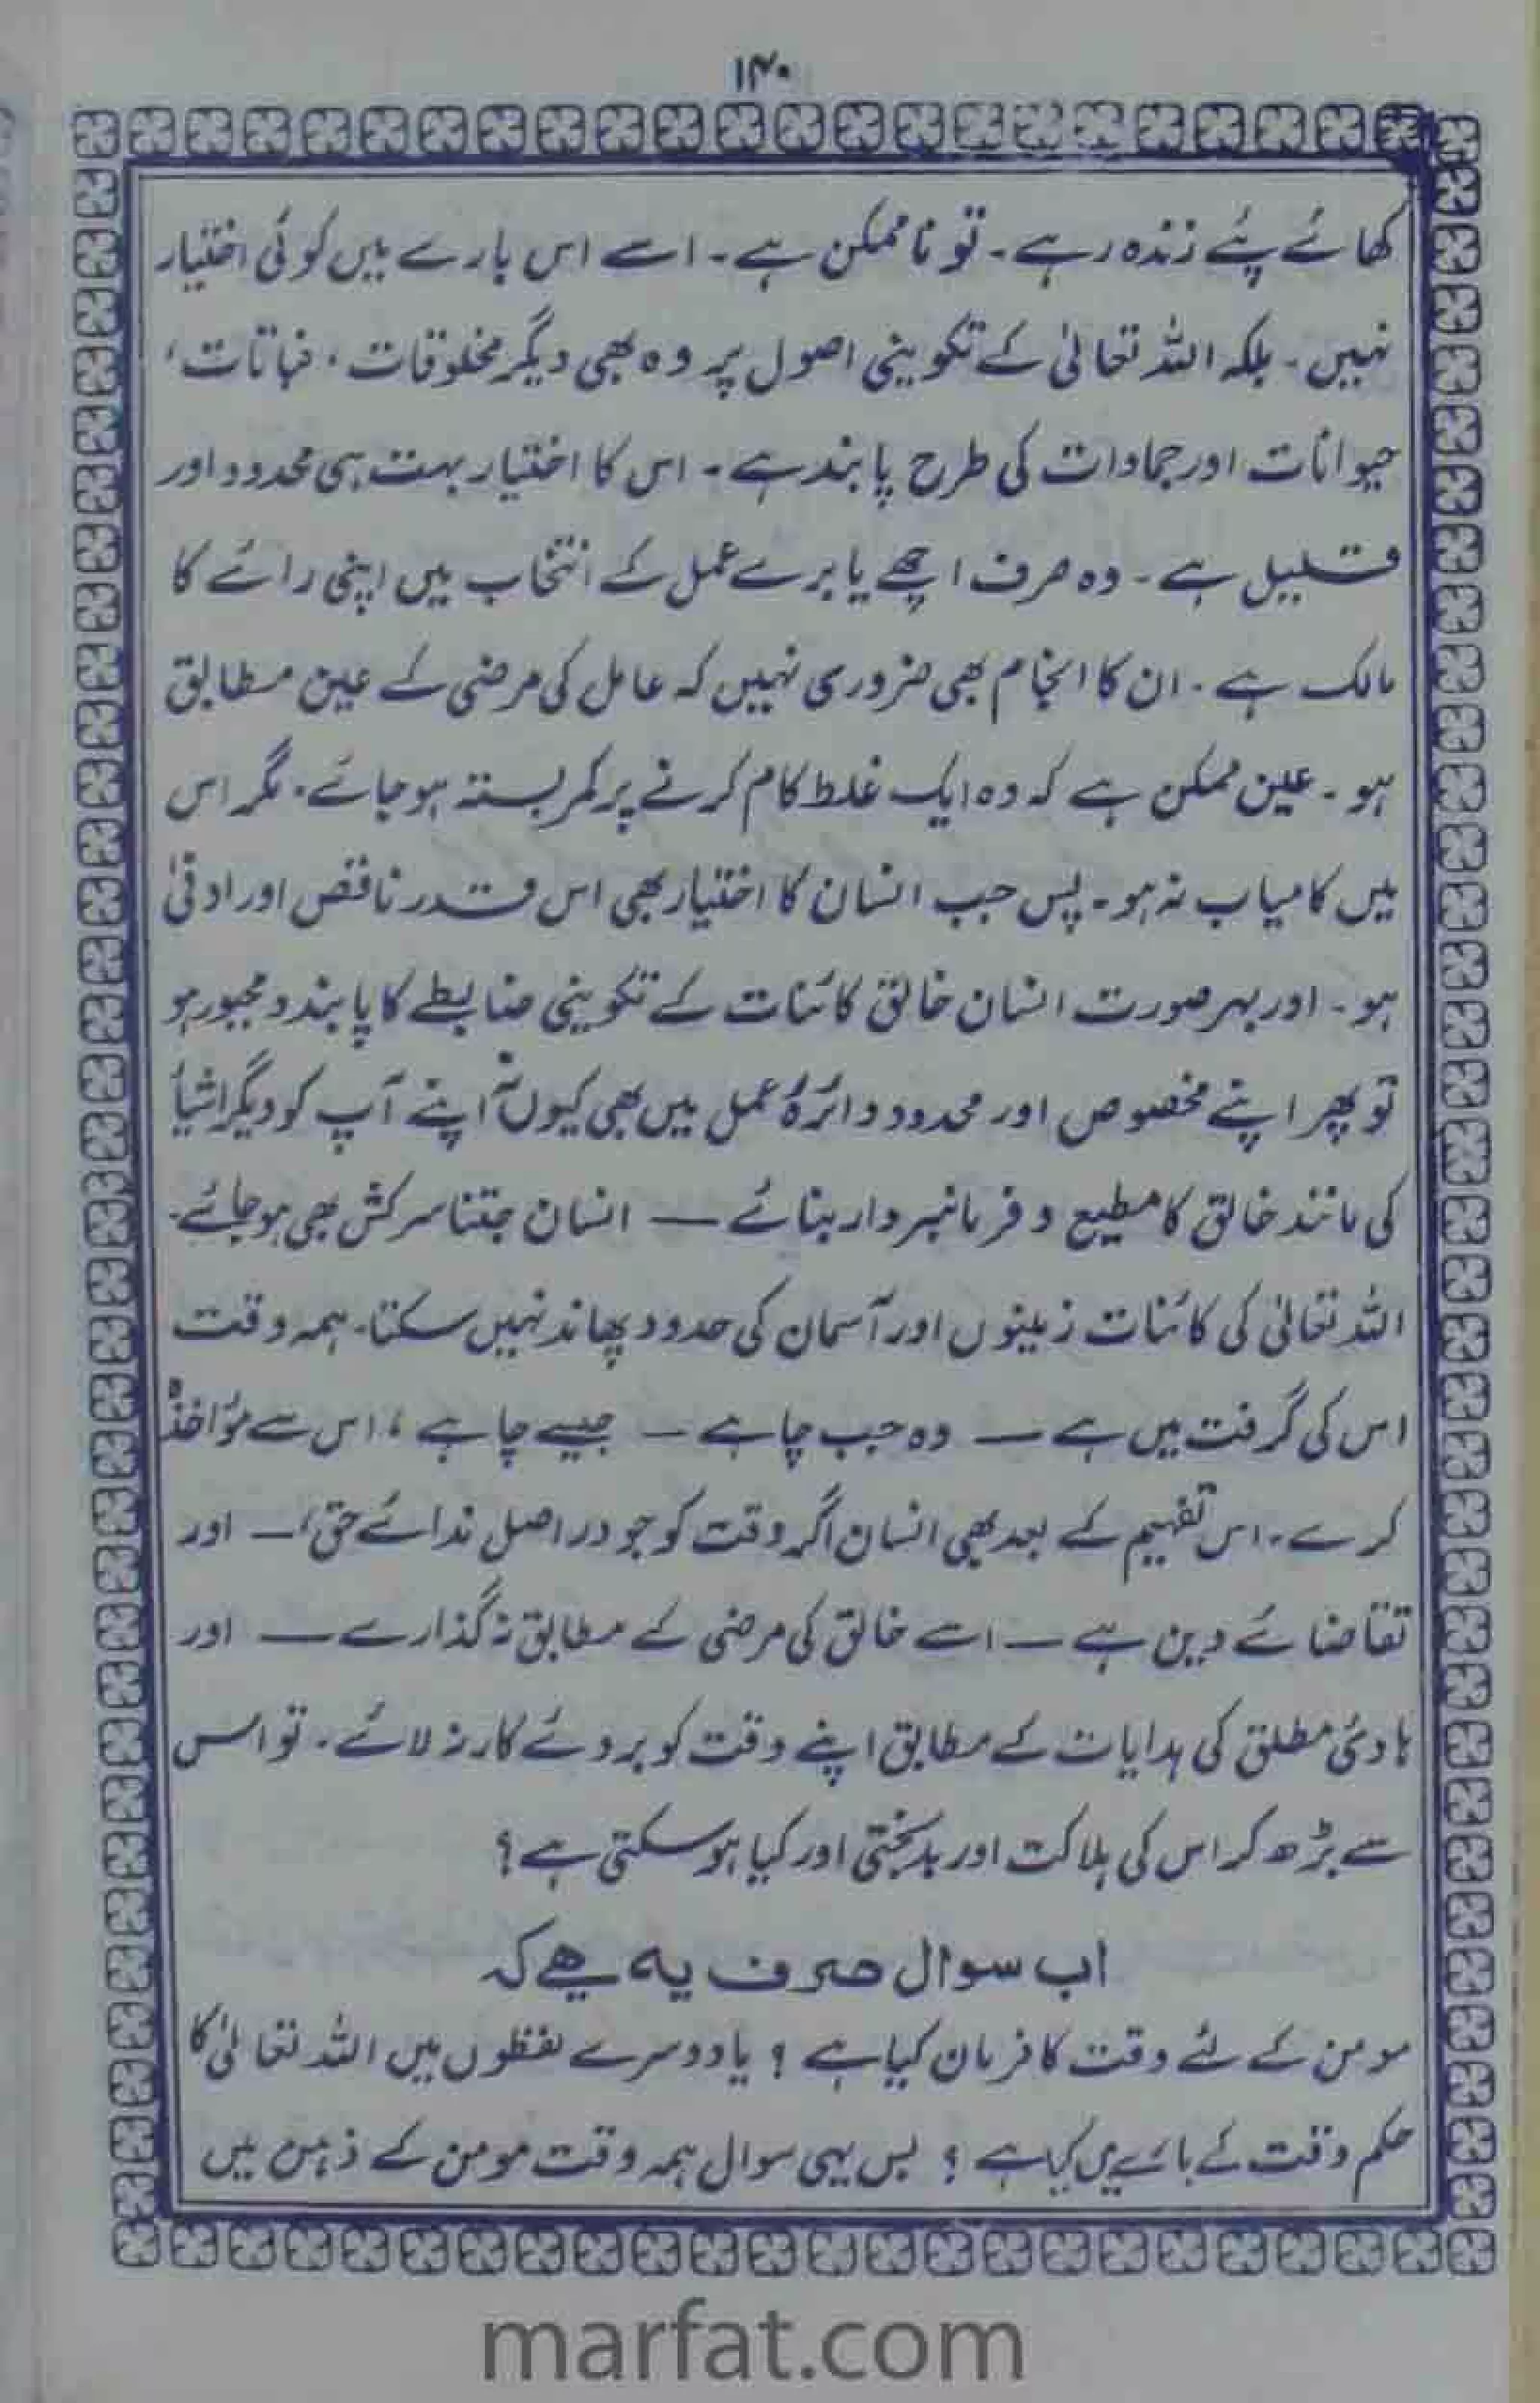 ۱۴۰
کھائے پئے زندہ رہے۔ تو ناممکن ہے۔ اسے اس بارے میں کوئی اختیار
نہیں۔ بلکہ اللہ تعالیٰ کے تکوینی اصول پر وہ بھی دیگر مخلوقات، نباتات،
حیوانات اور جمادات کی طرح پابند ہے۔ اس کا اختیار بہت ہی محدود اور
قلیل ہے۔ وہ صرف اچھے یا برے عمل کے انتخاب میں اپنی رائے کا
مالک ہے۔ ان کا انجام بھی ضروری نہیں کہ عامل کی مرضی کے عین مطابق
ہو۔ عین ممکن ہے کہ وہ ایک غلط کام کرنے پر کمربستہ ہو جائے۔ مگر اس
میں کامیاب نہ ہو۔ پس جب انسان کا اختیار بھی اس قدر ناقص اور ادنیٰ
ہو۔ اور بہر صورت انسان خالق کائنات کے تکوینی ضابطے کا پابند و مجبور ہو
تو پھر اپنے مخصوص اور محدود دائرۂ عمل میں بھی کیوں نہ اپنے آپ کو دیگر اشیأ
کی مانند خالق کا مطیع و فرمانبردار بنائے — انسان جتنا سرکش بھی ہو جائے۔
اللہ تعالیٰ کی کائنات زمینوں اور آسمان کی حدود پھاند نہیں سکتا۔ ہمہ وقت
اس کی گرفت میں ہے — وہ جب چاہے — جیسے چاہے، اس سے مؤاخذہ
کرے۔ اس تفہیم کے بعد بھی انسان اگر وقت کو جو دراصل ندائے حق، — اور
تقاضائے دین ہے — اسے خالق کی مرضی کے مطابق نہ گذارے — اور
ہادئ مطلق کی ہدایات کے مطابق اپنے وقت کو بروئے کار نہ لائے۔ تو اس
سے بڑھ کر اس کی ہلاکت اور بدبختی اور کیا ہو سکتی ہے؟
اب سوال صرف یہ ہے کہ
مومن کے لئے وقت کا فرمان کیا ہے؟ یا دوسرے لفظوں میں اللہ تعالیٰ کا
حکم وقت کے بارے میں کیا ہے؟ بس یہی سوال ہمہ وقت مومن کے ذہن میں
marfat.com